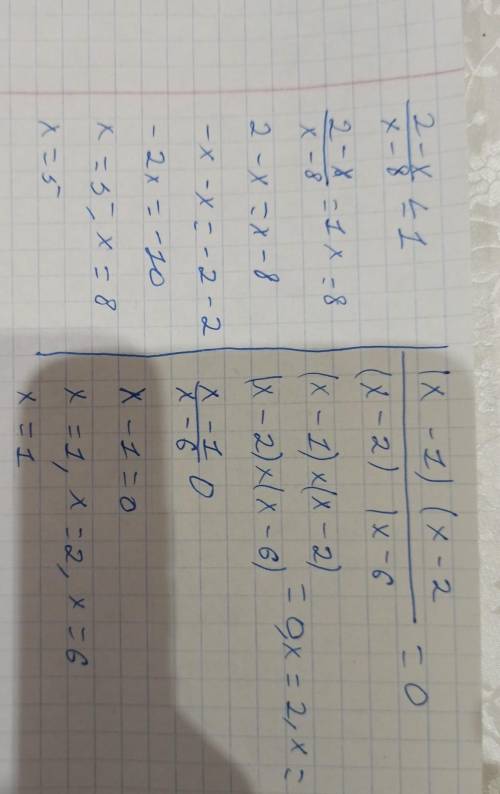 2-x/x-8=1
2-x/x-8=1 x=8
2-x=x-8
-x-x=-2-2
-2x=-10
x=5, x=8
x=5
(x-1)(x-2/(x-2)(x-6=0
(x-1)x(x-2)/(x-2)x(x-6)=0,x=2,x=
x-1/x-6 0
x-1=0
x=1, x=2, x=6
x=1